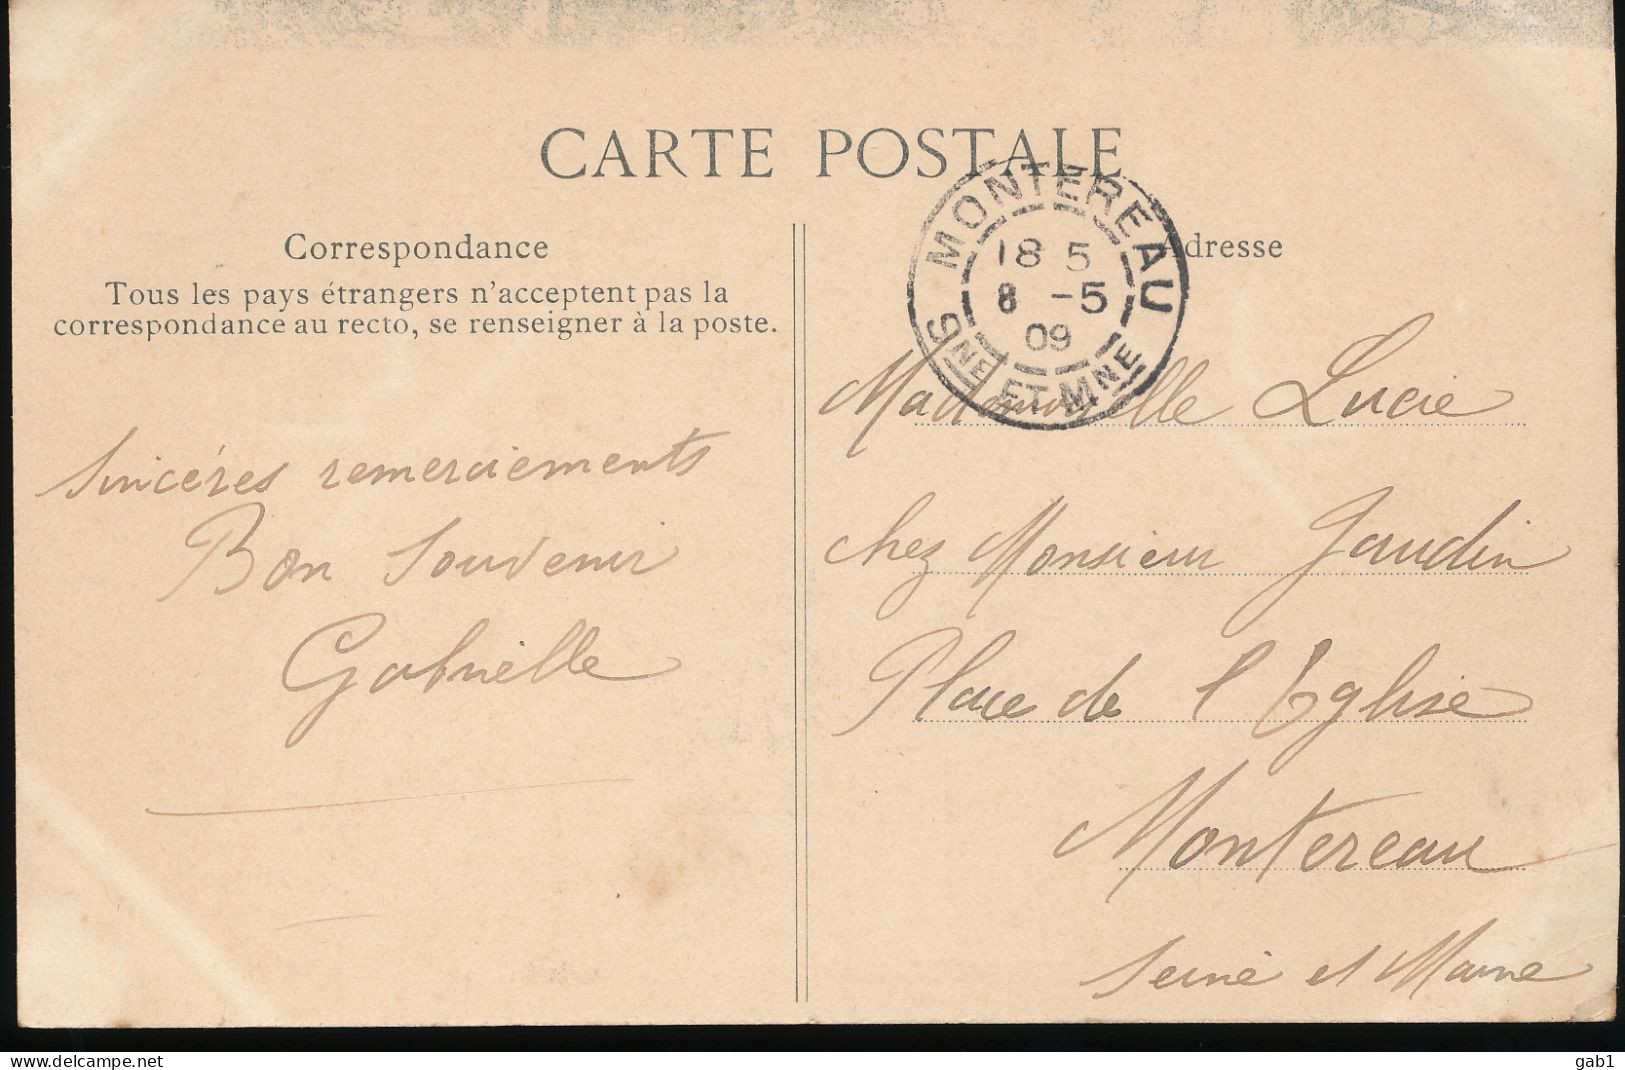 CARTE POSTALE
Correspondance
Tous les pays étrangers n'acceptent pas la
correspondance au recto, se renseigner à la poste.
Sincéres remerciements
Bon Souvenir
Gabrielle
MONTEREAU
18 5
8 -5
09
SNE ET MNE
Adresse
Mademoiselle Lucie
chez Monsieur Jaudin
Place de l'Eglise
Montereau
Seine et Marne
delcampe.net
gab1